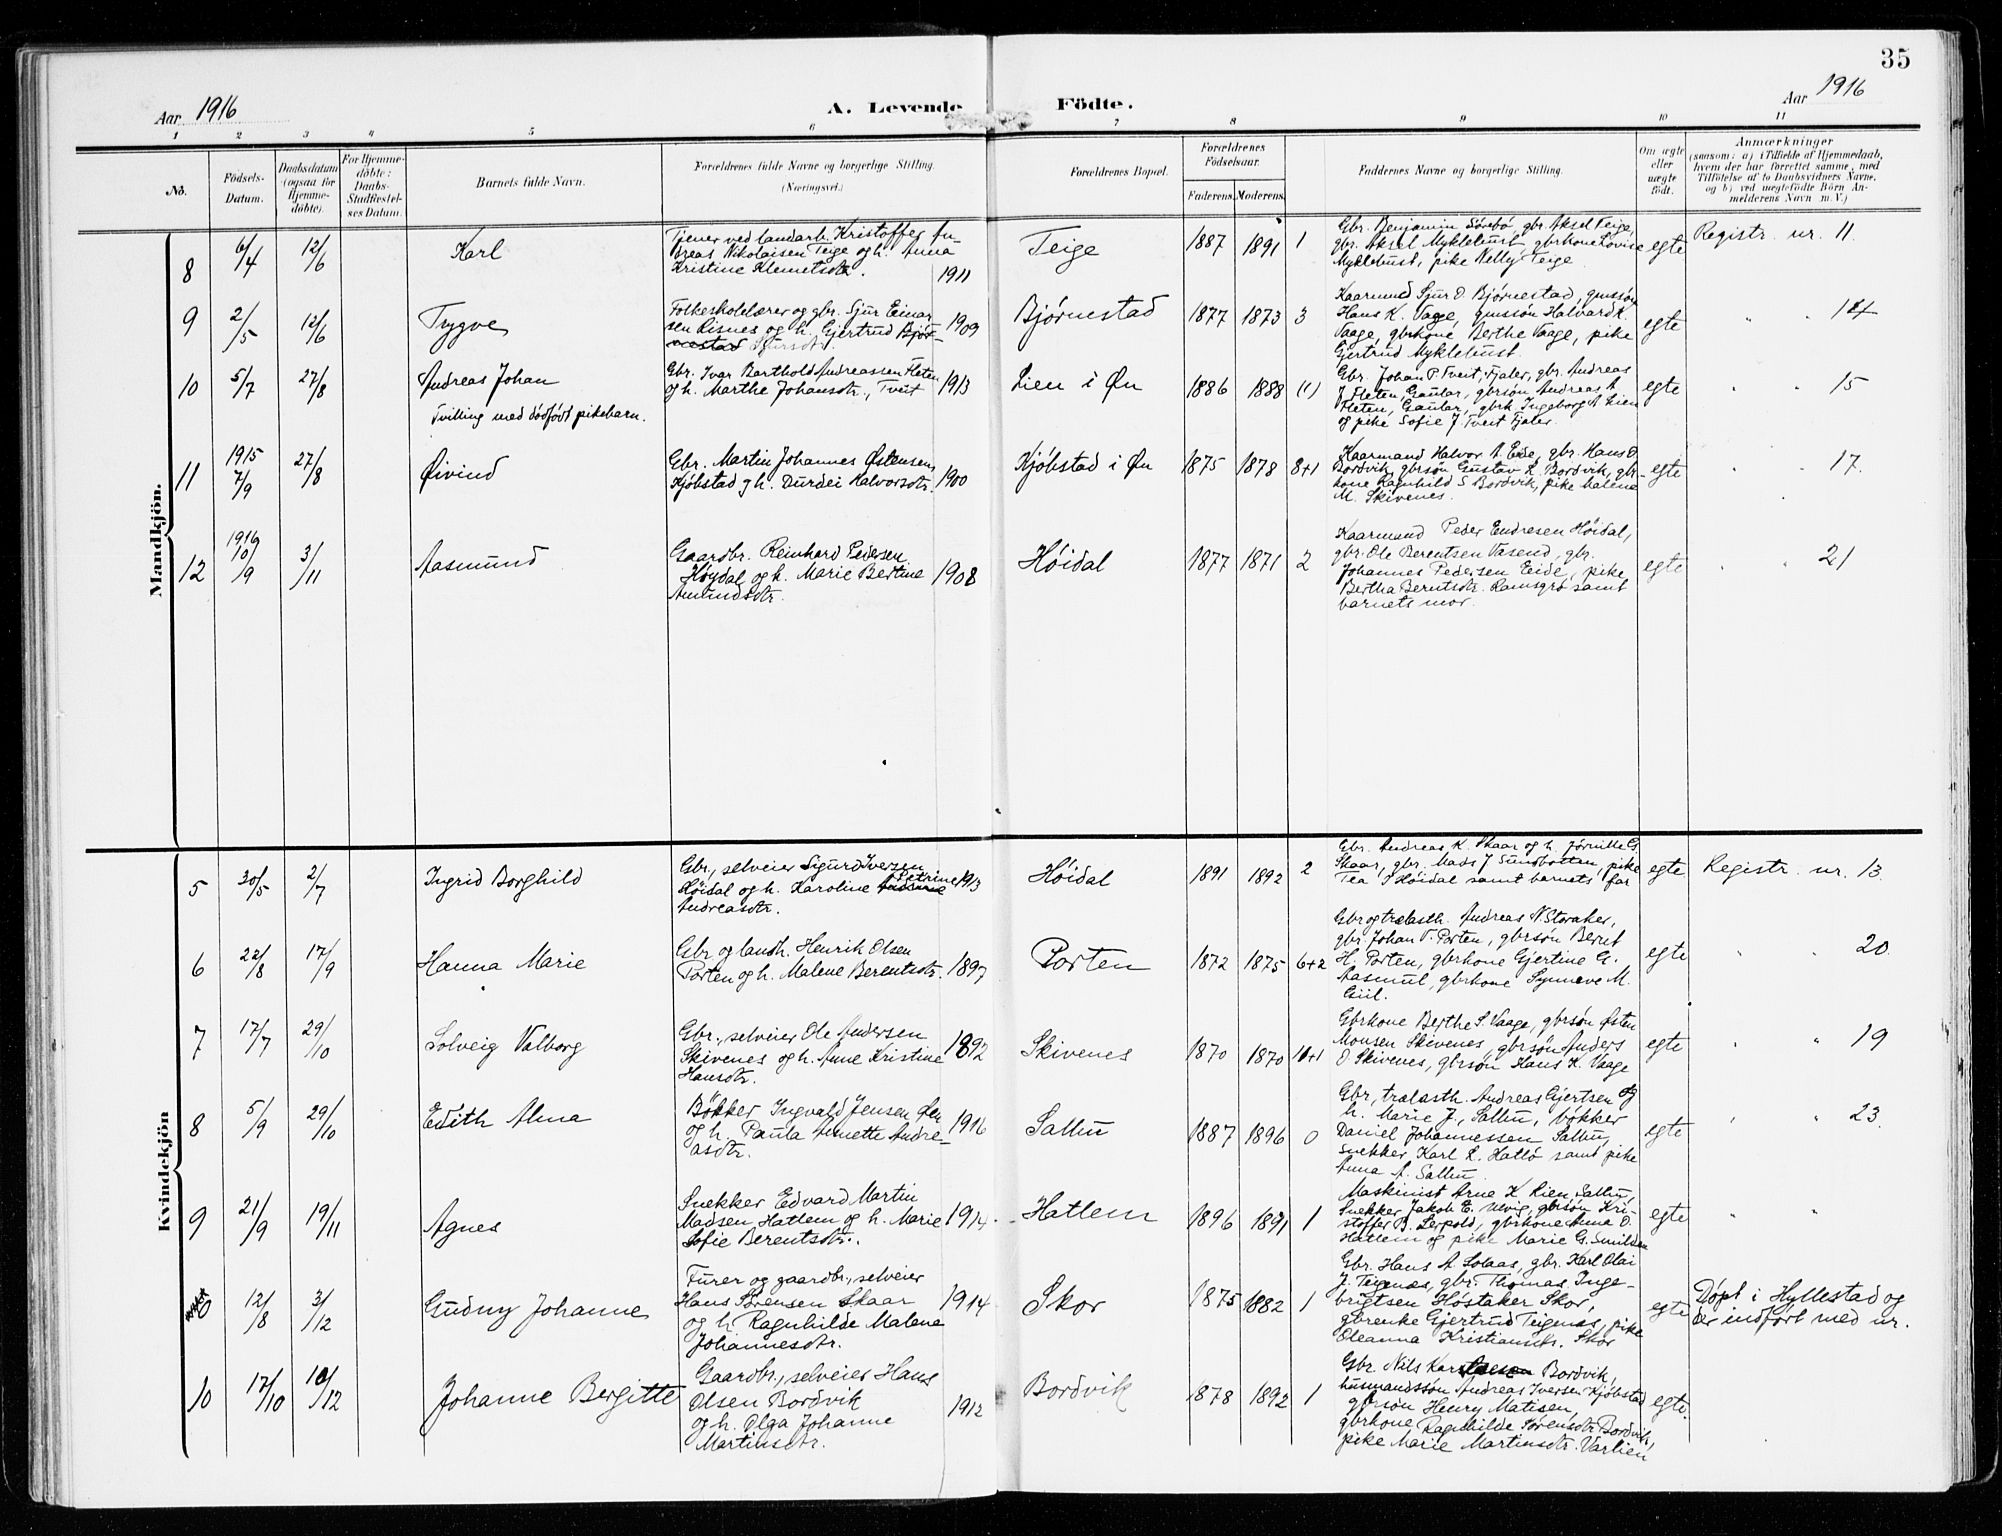 35
Aar 1916 A. Levende Födte. Aar 1916
1 2 3 4 5 6 7 8 9 10 11
No. Födsels-Datum. Daabsdatum (ogsaa for Hjemmedöbte). For Hjemmedöbte: Daabs-Stadfæstelses Datum. Barnets fulde Navn. Forældrenes fulde Navne og borgerlige Stilling. (Næringsvei.) Forældrenes Bopæl. Forældrenes Födselsaar. Faderens. Moderens. Faddernes Navne og borgerlige Stilling. Om ægte eller uægte födt. Anmærkninger (saasom: a) i Tilfælde af Hjemmedaab, hvem der har forrettet samme, med Tilföielse af to Daabsvidners Navne, og b) ved uægtefödte Börn Anmelderens Navn m. V.)
Mandkjön.
8 6/4 12/6 Karl
Tjener ved landarb. Kristoffer An-
dreas Nikolaisen Teige og h. Anna
Kristine Klemetsdtr. 1911
Teige 1887 1891 1
Gbr. Benjamin Sörebö, gbr. Aksel Teige,
gbr. Aksel Myklebust, gbrkone Lovise
Myklebust, pike Nelly Teige
egte Registr. nr. 11.
9 2/5 12/6 Trygve
Folkeskolelærer og gbr. Sjur Einar
sen Risnes og h. Gjertrud Bjør-
nestad Sjursdtr. 1909
Bjørnestad 1877 1873 3
Kaarmand Sjur O. Bjørnestad, gmssøn
Hans K. Vage, gmssøn Halvard K.
Vaage, gbrkone Berthe Vaage, pike
Gjertrud Myklebust.
egte " " 14
10 5/7 27/8 Andreas Johan
Tvilling med dødfødt pikebarn.
Gbr. Ivar Barthold Andreassen Fleten
og h. Marthe Johansdtr., Tveit 1913
Lien i Øn 1886 1888 (1)
Gbr. Johan P. Tveit, Fjaler, gbr. Andreas
J. Fleten, Gaular, gbrsøn Andreas A.
Fleten, Gaular, gbrk. Ingeborg A. Lien
og pike Sofie J. Tveit Fjaler.
egte " " 15
11 1915 7/9 27/8 Øivind
Gbr. Martin Johannes Østensen
Kjøbstad og h. Durdei Halvorsdtr. 1900
Kjøbstad i Øn 1875 1878 8+1
Kaarmand Halvor A. Eide, gbr. Hans O.
Bordvik, gbrsøn Gustav L. Bordvik, gbr-
kone Ragnhild S Bordvik, pike Malene
M. Skivenes.
egte " " 17.
12 1916 10/9 3/11 Aasmund
Gaardbr. Reinhard Pedersen
Høydal og h. Marie Bertine
Amundsdtr. 1908
Høidal 1877 1871 2
Kaarmand Peder Endresen Høidal,
gbr. Ole Berentsen Vasend, gbr.
Johannes Pedersen Eide, pike
Bertha Berntsdtr. Ramsgrø samt
barnets mor.
egte " " 21
Kvindekjön
5 30/5 2/7 Ingrid Borghild
Gbr., selveier Sigurd Iversen
Høidal og h. Karoline Petrine 1913
Andreasdtr.
Høidal 1891 1892 2
Gbr. Andreas K. Skaar og h. Jørnille G.
Skaar, gbr. Mads J Sundbotten, pike
Tea S Høidal samt barnets far
egte Registr. nr. 13.
6 22/8 17/9 Hanna Marie
Gbr og landh. Henrik Olsen
Porten og h. Malene Berentsdtr. 1897
Porten 1872 1875 6+2
Gbr og trælasth. Andreas N. Storaker,
gbr. Johan T. Porten, gbrsøn Bernt
H. Porten, gbrkone Gjertine G.
Aasmul, gbrkone Synneve M.
Giil.
egte " " 20.
7 17/7 29/10 Solveig Valborg
Gbr., selveier Ole Andersen
Skivenes og h. Anne Kristine
Hansdtr. 1892
Skivenes 1870 1870 10+1
Gbrkone Berthe S. Vaage, gbrsøn Østen
Monsen Skivenes, gbrsøn Anders
O Skivenes, gbrsøn Hans K. Vaage
egte " " 19
8 5/9 29/10 Edith Alma
Bøkker Ingvald Jensen Øen
og h. Paula Anette Andre-
asdtr. 1916
Salbu 1887 1896 0
Gbr, trælasth. Andreas Gjertsen og
h. Marie J., Salbu, bøkker
Daniel Johannessen Salbu,
snekker Karl L. Hatlø samt pike
Anna A. Salbu
egte " " 23.
9 21/9 19/11 Agnes
Snekker Edvard Martin
Madsen Hatlem og h. Marie
Sofie Berentsdtr. 1914.
Hatlem 1896 1891 1
Maskinist Arne K Lien Salbu,
Snekker Jakob E. Ulvig, gbrsøn Kri-
stoffer B. Lerpold, gbrkone Anna O.
Hatlem og pike Marie G. Smilden
egte " "
0 12/8 3/12 Gudny Johanne
Furer og gaardbr., selveier
Hans Sørensen Skaar
og h. Ragnhilde Malene
Johannesdtr. 1914
Skor 1875 1882 1
Gbr. Hans A. Solaas, gbr. Karl Olai
J. Teigenæs, gbr. Thomas Inge-
brigtsen Høstaker Skor,
gbrenke Gjertrud Teigenæs, pike
Oleanna Kristiansdtr. Skor
egte Døpt i Hyllestad og
der indført med nr.
10 17/10 10/12 Johanne Bergitte
Gaardbr., selveier Hans
Olsen Bordvik
og h. Olga Johanne
Martinsdtr. 1912
Bordvik 1878 1892 1
Gbr. Nils Bordvik,
husmandssøn Andreas Iversen Kjøbstad
gbrsøn Henry Matisen,
gbrkone Ragnhilde Sørensdtr Bordvik,
pike Marie Martinsdtr. Varlien
egte.